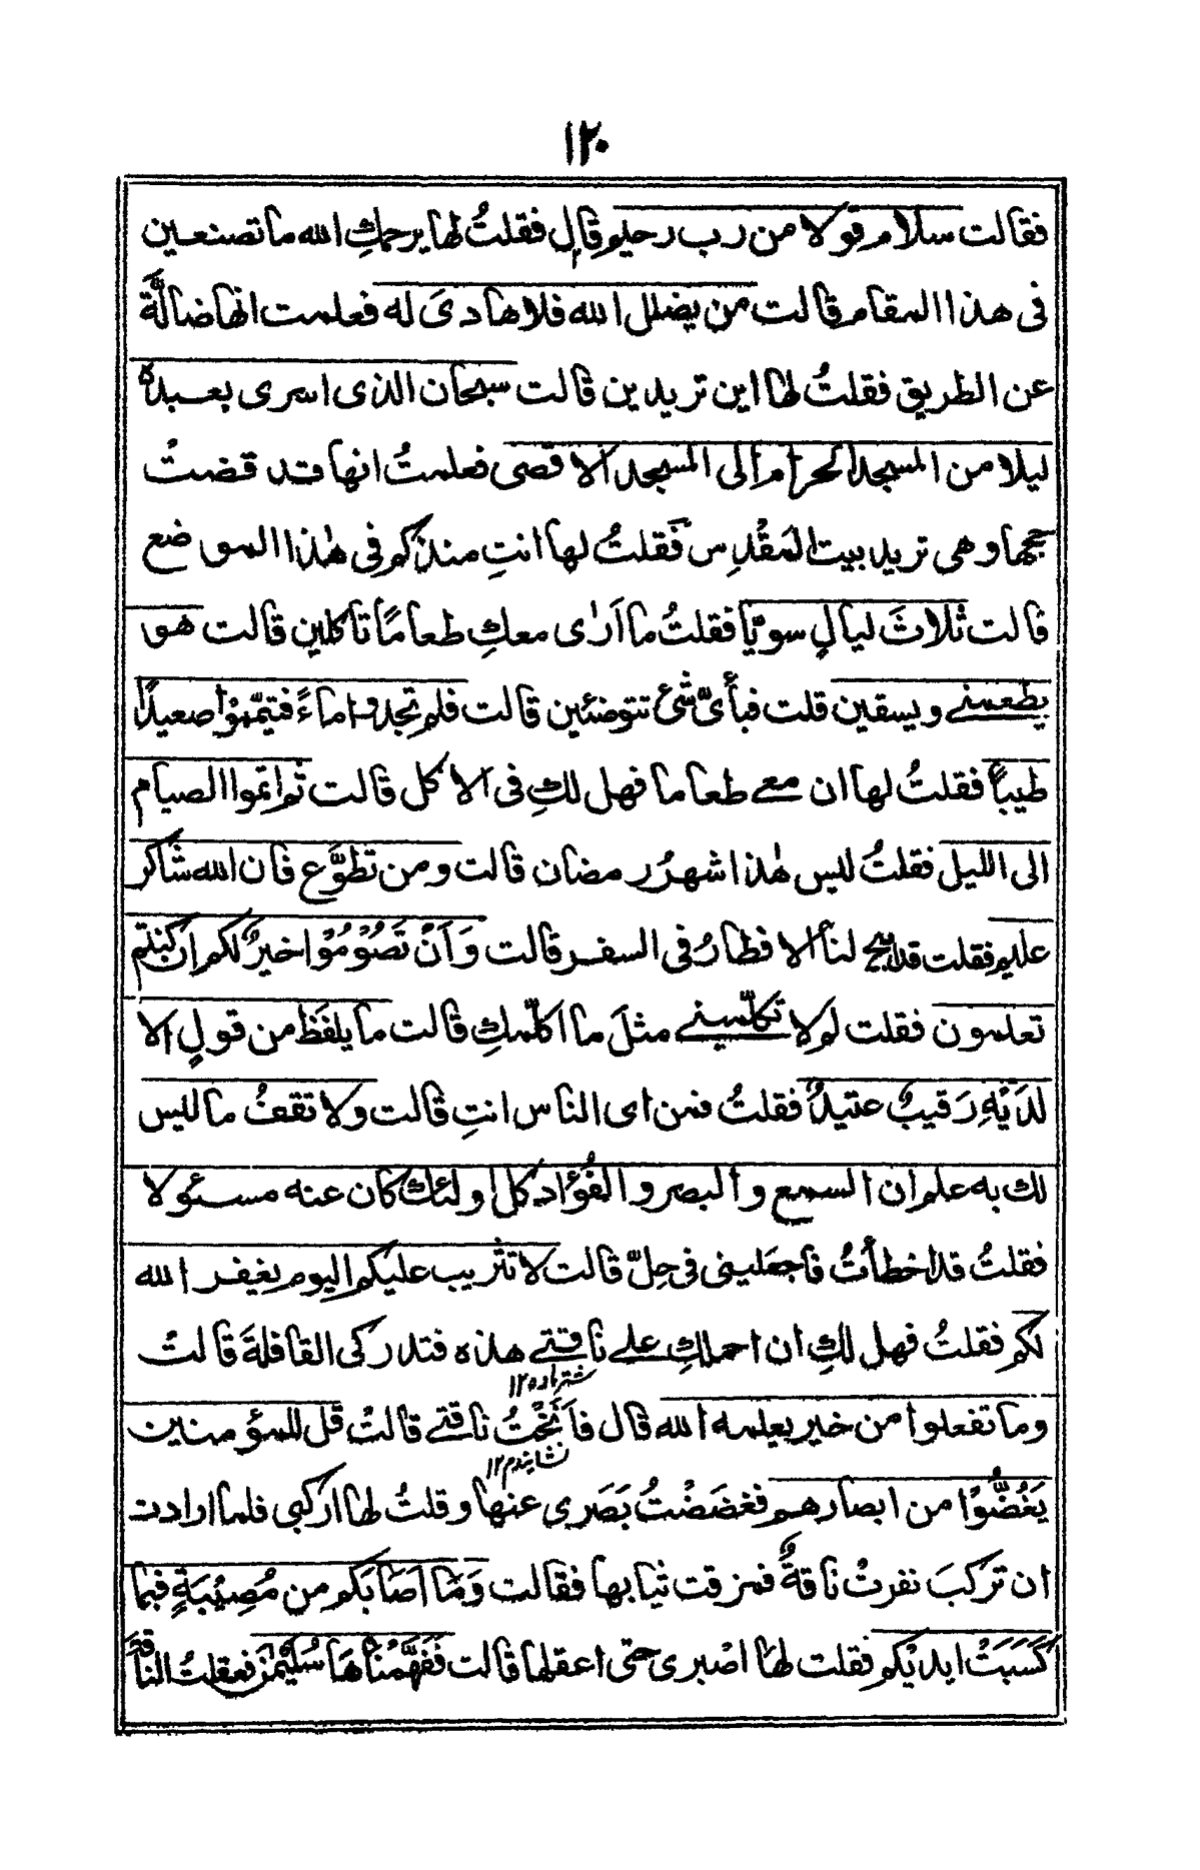 ١٢٠
فقالت سلام قولا من رب رحيم قال فقلتُ لها يرحمكِ الله ما تصنعين
فى هذا المقام قالت من يضلل الله فلا هادىَ له فعلمت انها ضالَّة
عن الطريق فقلتُ لها اين تريدين قالت سبحان الذى اسرى بعبده
ليلا من المسجد الحرام الى المسجد الاقصى فعلمتُ انها قد قضتْ
حجها وهى تريد بيت المَقْدِس فَقلتُ لها انتِ منذ كم فى هٰذا الموضع
قالت ثلاثَ ليالٍ سويًّا فقلتُ ما اَرٰى معكِ طعامًا تاكلين قالت هو
يطعمنے ويسقين قلت فبأىّ شئ تتوضئين قالت فلم تجدوا ماءً فتيمّموْا صعيدًا
طيبًا فقلتُ لها ان معے طعاما فهل لكِ فى الاكل قالت ثم اتموا الصيام
الى الليل فقلتُ ليس هٰذا شهرُ رمضان قالت ومن تطوَّع فان الله شاكر
عليم فقلت قد ابيح لنا الافطارُ فى السفر قالت وَاَنْ تَصُوْمُوْا خيرٌ لكم ان كنتم
تعلمون فقلت لم لا تكلّمينے مثلَ ما اكلّمكِ قالت ما يلفَظ من قولٍ الا
لدَيْهِ رَقيبٌ عتيدٌ فقلتُ فمن اى الناس انتِ قالت ولا تقفُ ما ليس
لك به علم ان السمع والبصر والفُؤاد كل اولئك كان عنه مسئولا
فقلتُ قد اخطأتُ فاجعلينى فى حِلّ قالت لا تثريب عليكم اليوم يغفر الله
لكم فقلتُ فهل لكِ ان احملكِ علے ناقتے هذه فتدركى القافلةَ قالتْ
شتر ماده ١٢
وما تفعلوا من خير يعلمه الله قال فاَنَخْتُ ناقتے قالتْ قل للمؤمنين
نشايندم ١٢
يَغُضُّوْا من ابصارهم فغضَضْتُ بَصَرى عنها وقلتُ لها اركبى فلما ارادت
ان تركبَ نفرتْ ناقةٌ فمزقت ثيابها فقالت وَمَا اَصَابَكم من مُصِيْبَةٍ فبما
كَسَبَتْ ايديْكم فقلت لها اصْبرى حتى اعقلها قالت فَفَهَّمْنٰاهَا سُلَيْمٰنَ فعقلتُ الناقة